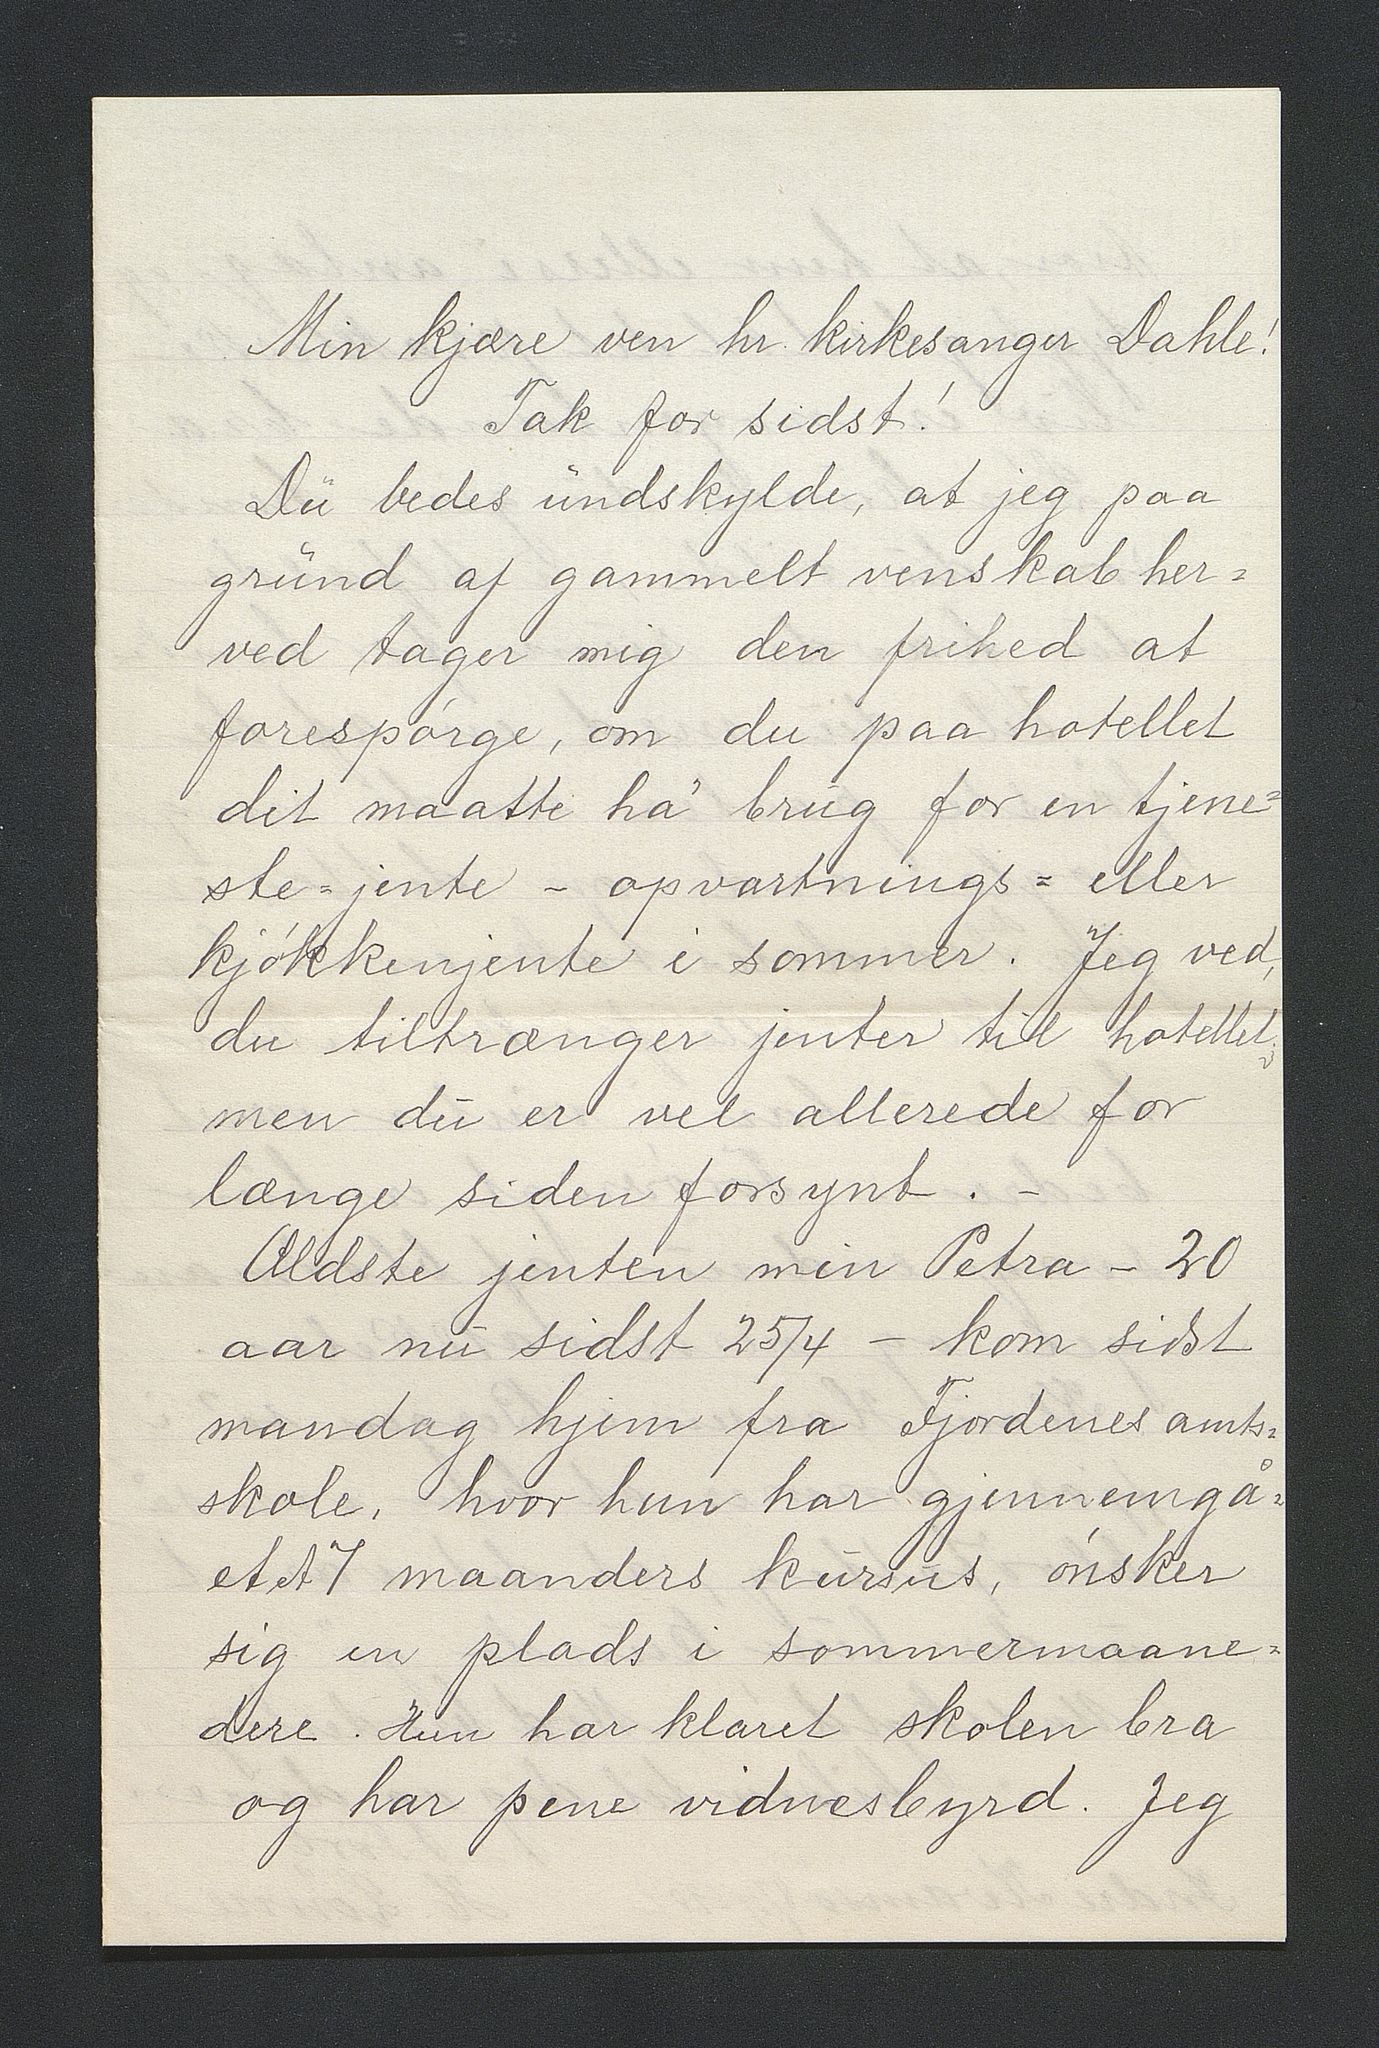 Min kjære ven hr. kirkesanger Dahle!
Tak for sidst!
Du bedes undskylde, at jeg paa
grund af gammelt venskab her=
ved tager mig den frihed at
forespørge, om du paa hotellet
dit maatte ha' brug for en tjene=
ste=jente - opvartnings= eller
kjøkkenjente i sommer. Jeg ved,
du tiltrænger jenter til hotellet;
men du er vel allerede for
længe siden forsynt. -
Ældste jenten min Petra - 20
aar nu sidst 25/4 - kom sidst
mandag hjem fra Fjordenes amts=
skole, hvor hun har gjennemgå=
et et 7 maanders kursus, ønsker
sig en plads i sommermaane=
dere. Hun har klaret skolen bra
og har pene vidnesbyrd. Jeg